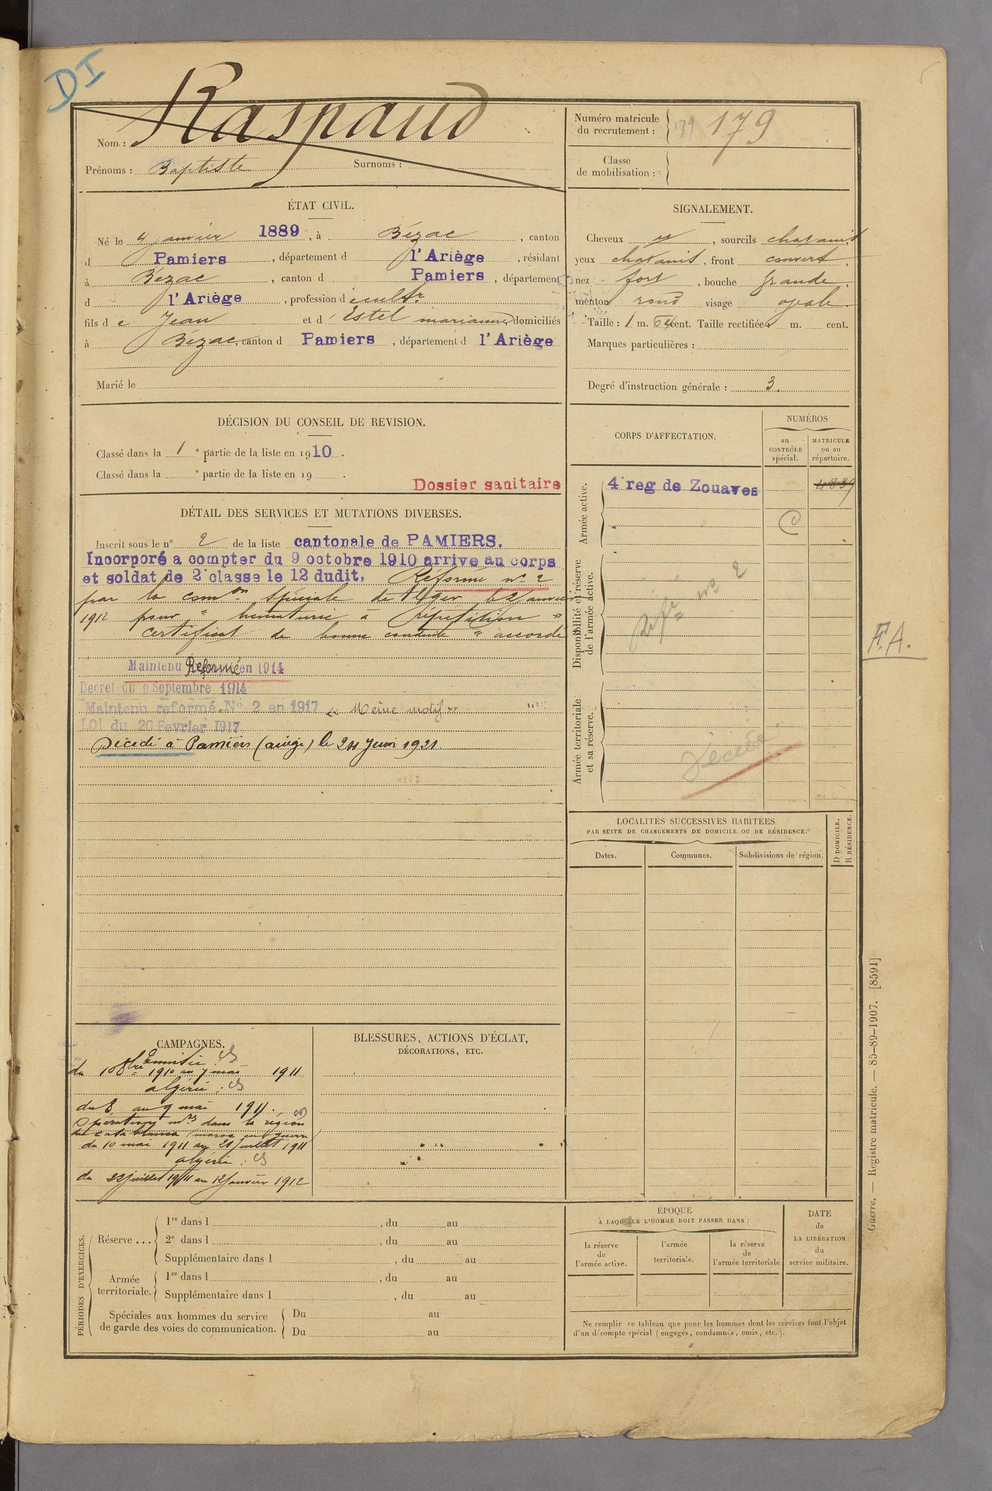 DI
Nom : Raspaud
Prénoms : Baptiste Surnoms :
Numéro matricule du recrutement : 179 179
Classe de mobilisation :
ÉTAT CIVIL.
Né le 4 janvier 1889, à Bézac, canton
d Pamiers, département d l'Ariège, résidant
à Bézac, canton d Pamiers, département
d l'Ariège, profession d cultr
fils d e Jean et d Estel marianne, domiciliés
à Bézac, canton d Pamiers, département d l'Ariège
Marié le
SIGNALEMENT.
Cheveux et, sourcils chatains
yeux chatains, front couvert
nez fort, bouche grande
menton rond visage ovale
Taille : 1 m. cent. Taille rectifiée m. cent.
Marques particulières :
Degré d'instruction générale : 3.
DÉCISION DU CONSEIL DE REVISION.
Classé dans la 1 e partie de la liste en 1910.
Classé dans la e partie de la liste en 19 .
Dossier sanitaire
DÉTAIL DES SERVICES ET MUTATIONS DIVERSES.
Inscrit sous le n° 2 de la liste cantonale de PAMIERS.
Incorporé a compter du 9 octobre 1910 arrive au corps
et soldat de 2e classe le 12 dudit. Réformé n° 2
par la comon spéciale de janvier
1912 pour " hématurie à répétition "
certificat de bonne conduite " accordé
Maintenu Réformé en 1914
Decret du 9 Septembre 1914
Maintenu réformé N° 2 en 1917 Même motif
LOI du 20 Fevrier 1917
Décédé à Pamiers (ariège) le 24 Juin 1921
CORPS D'AFFECTATION.
NUMÉROS
au CONTRÔLE spécial.
MATRICULE ou au répertoire.
Armée active.
4e reg de Zouaves
Disponibilité et réserve de l'armée active.
n° 2
Armée territoriale et sa réserve.
Décédé
F.A.
LOCALITÉS SUCCESSIVES HABITÉES
PAR SUITE DE CHANGEMENTS DE DOMICILE OU DE RÉSIDENCE.
Dates. Communes. Subdivisions de région.
D DOMICILE. R RÉSIDENCE.
CAMPAGNES.
Tunisie
du 10 8bre 1910 au 7 mai 1911
algérie
du 8 au 9 mai 1911.
Opérations mres dans la région
du 10 mai 1911 au 21 juillet 1911
algérie
du 22 juillet 1911 au 12 janvier 1912
BLESSURES, ACTIONS D'ÉCLAT,
DÉCORATIONS, ETC.
PÉRIODES D'EXERCICES.
Réserve ...
1re dans l , du au
2e dans l , du au
Supplémentaire dans l , du au
Armée territoriale.
1re dans l , du au
Supplémentaire dans l , du au
Spéciales aux hommes du service
de garde des voies de communication.
Du au
Du au
ÉPOQUE
À LAQUELLE L'HOMME DOIT PASSER DANS :
la réserve de l'armée active.
l'armée territoriale.
la réserve de l'armée territoriale
DATE de LA LIBÉRATION du service militaire.
Ne remplir ce tableau que pour les hommes dont les services font l'objet
d'un décompte spécial (engagés, condamnés, omis, etc.).
Guerre. — Registre matricule. — 85-89-1907. [8591]